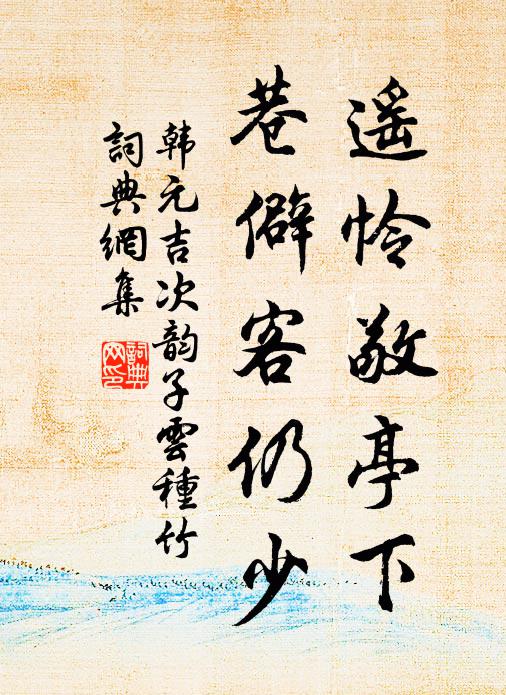 遥怜敬亭下
巷僻客仍少
韩元吉次韵子雲種竹
詞典網集
詞典网印